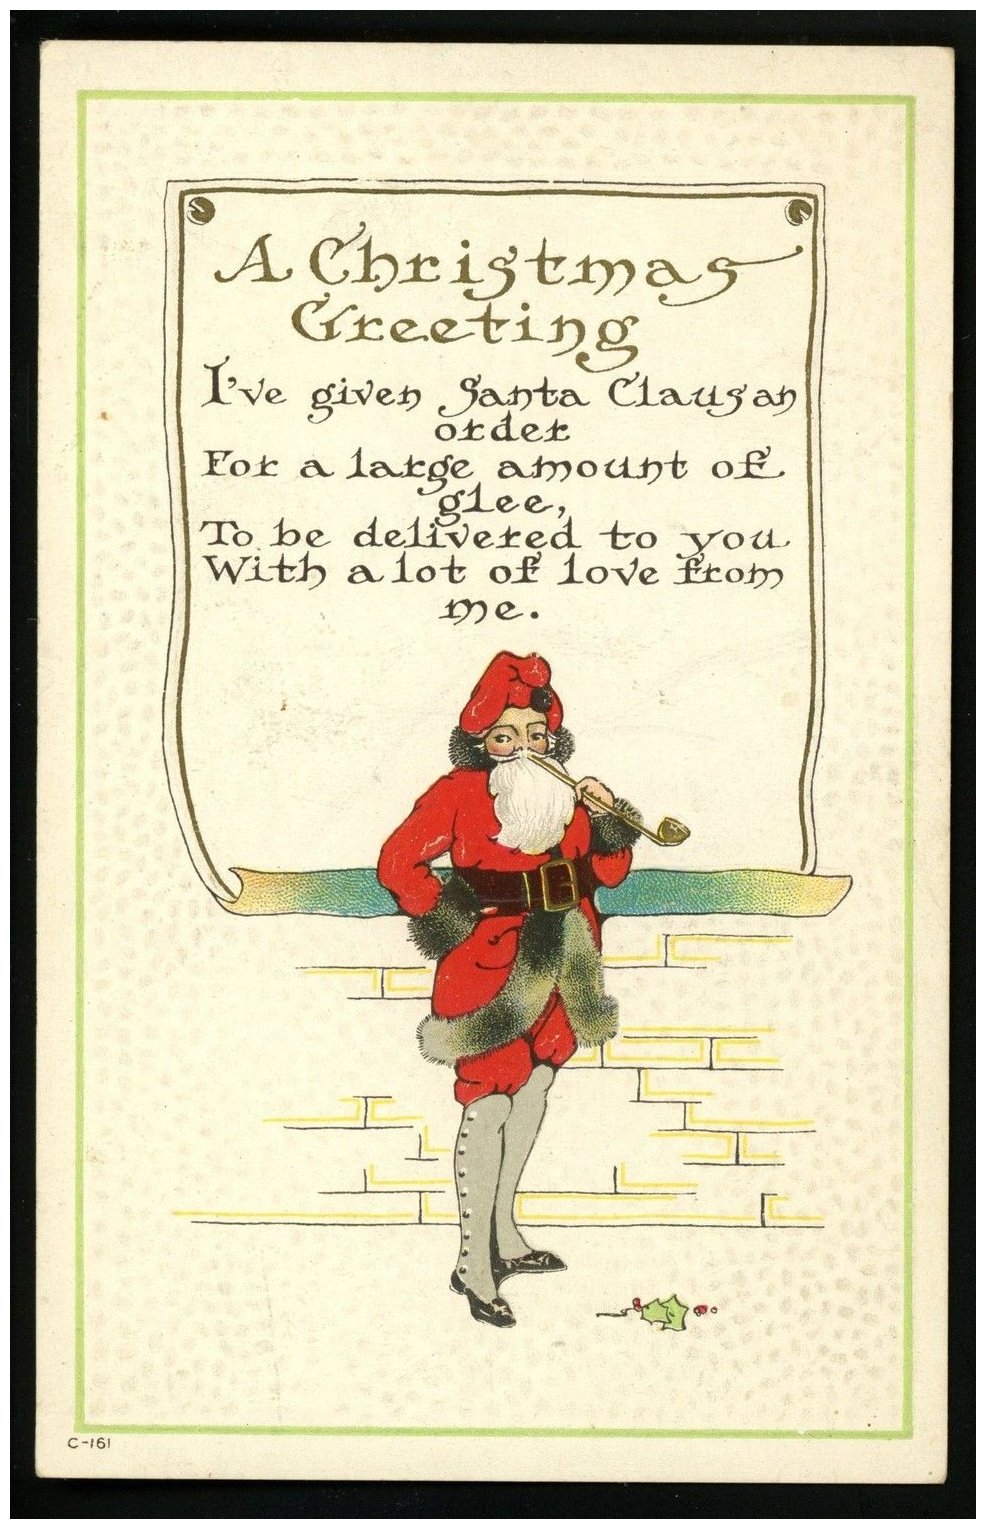 A Christmas
Greeting
I've given Santa Claus an
order
For a large amount of
glee,
To be delivered to you
With a lot of love from
me.
C-161